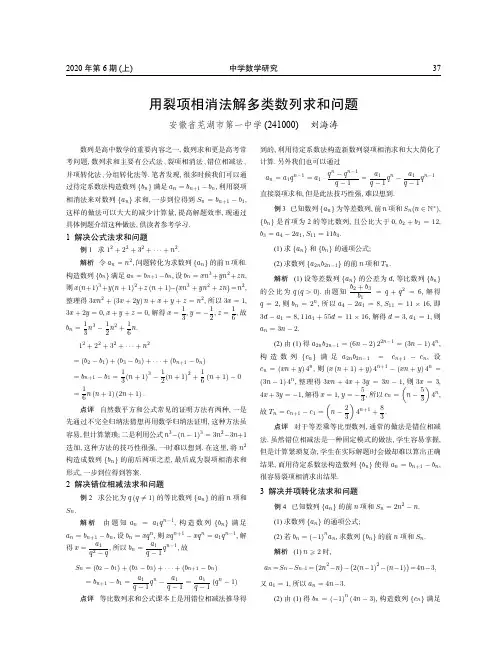 2020 年第 6 期 (上)
中学数学研究
37
用裂项相消法解多类数列求和问题
安徽省芜湖市第一中学 (241000) 刘海涛
数列是高中数学的重要内容之一, 数列求和更是高考常
考问题, 数列求和主要有公式法、裂项相消法、错位相减法、
并项转化法、分组转化法等. 笔者发现, 很多时候我们可以通
过待定系数法构造数列 {bₙ} 满足 aₙ = bₙ₊₁ − bₙ, 利用裂项
相消法来对数列 {aₙ} 求和, 一步到位得到 Sₙ = bₙ₊₁ − b₁,
这样的做法可以大大的减少计算量, 提高解题效率, 现通过
具体例题介绍这种做法, 供读者参考学习.
1 解决公式法求和问题
例 1 求 1² + 2² + 3² + ··· + n².
解析 令 aₙ = n², 问题转化为求数列 {aₙ} 的前 n 项和.
构造数列 {bₙ} 满足 aₙ = bₙ₊₁ − bₙ, 设 bₙ = xn³+yn²+zn,
则 x(n+1)³+y(n+1)²+z(n+1)−(xn³+yn²+zn)=n²,
整理得 3xn² + (3x + 2y) n + x + y + z = n², 所以 3x = 1,
3x + 2y = 0, x + y + z = 0, 解得 x = 1/3, y = −1/2, z = 1/6. 故
bₙ = 1/3 n³ − 1/2 n² + 1/6 n.
1² + 2² + 3² + ··· + n²
= (b₂ − b₁) + (b₃ − b₂) + ··· + (bₙ₊₁ − bₙ)
= bₙ₊₁ − b₁ = 1/3 (n + 1)³ − 1/2 (n + 1)² + 1/6 (n + 1) − 0
= 1/6 n (n + 1) (2n + 1).
点评 自然数平方和公式常见的证明方法有两种, 一是
先通过不完全归纳法猜想再用数学归纳法证明, 这种方法虽
容易, 但计算繁琐; 二是利用公式 n³−(n − 1)³ = 3n²−3n+1
迭加, 这种方法的技巧性很强, 一时难以想到. 在这里, 将 n²
构造成数列 {bₙ} 的前后两项之差, 最后成为裂项相消求和
形式, 一步到位得到答案.
2 解决错位相减法求和问题
例 2 求公比为 q (q ≠ 1) 的等比数列 {aₙ} 的前 n 项和
Sₙ.
解析 由题知 aₙ = a₁qⁿ⁻¹, 构造数列 {bₙ} 满足
aₙ = bₙ₊₁ − bₙ, 设 bₙ = xqⁿ, 则 xqⁿ⁺¹ − xqⁿ = a₁qⁿ⁻¹, 解
得 x = a₁/(q² − q), 所以 bₙ = a₁/(q − 1) qⁿ⁻¹, 故
Sₙ = (b₂ − b₁) + (b₃ − b₂) + ··· + (bₙ₊₁ − bₙ)
= bₙ₊₁ − b₁ = a₁/(q − 1) qⁿ − a₁/(q − 1) = a₁/(q − 1) (qⁿ − 1)
点评 等比数列求和公式课本上是用错位相减法推导得
到的, 利用待定系数法构造新数列裂项相消求和大大简化了
计算. 另外我们也可以通过
aₙ = a₁qⁿ⁻¹ = a₁ · (qⁿ − qⁿ⁻¹)/(q − 1) = a₁/(q − 1) qⁿ − a₁/(q − 1) qⁿ⁻¹
直接裂项求和, 但是此法技巧性强, 难以想到.
例 3 已知数列 {aₙ} 为等差数列, 前 n 项和 Sₙ(n ∈ N*),
{bₙ} 是首项为 2 的等比数列, 且公比大于 0, b₂ + b₃ = 12,
b₃ = a₄ − 2a₁, S₁₁ = 11b₄.
(1) 求 {aₙ} 和 {bₙ} 的通项公式;
(2) 求数列 {a₂ₙb₂ₙ₋₁} 的前 n 项和 Tₙ.
解析 (1) 设等差数列 {aₙ} 的公差为 d, 等比数列 {bₙ}
的公比为 q (q > 0). 由题知 (b₂ + b₃)/b₁ = q + q² = 6, 解得
q = 2, 则 bₙ = 2ⁿ, 所以 a₄ − 2a₁ = 8, S₁₁ = 11 × 16, 即
3d − a₁ = 8, 11a₁ + 55d = 11 × 16, 解得 d = 3, a₁ = 1, 则
aₙ = 3n − 2.
(2) 由 (1) 得 a₂ₙb₂ₙ₋₁ = (6n − 2) 2²ⁿ⁻¹ = (3n − 1) 4ⁿ,
构造数列 {cₙ} 满足 a₂ₙb₂ₙ₋₁ = cₙ₊₁ − cₙ, 设
cₙ = (xn + y) 4ⁿ, 则 (x (n + 1) + y) 4ⁿ⁺¹ − (xn + y) 4ⁿ =
(3n − 1) 4ⁿ, 整理得 3xn + 4x + 3y = 3n − 1, 则 3x = 3,
4x + 3y = −1, 解得 x = 1, y = −5/3, 所以 cₙ = (n − 5/3) 4ⁿ,
故 Tₙ = cₙ₊₁ − c₁ = (n − 2/3) 4ⁿ⁺¹ + 8/3.
点评 对于等差乘等比型数列, 通常的做法是错位相减
法. 虽然错位相减法是一种固定模式的做法, 学生容易掌握,
但是计算繁琐复杂, 学生在实际解题时会做却难以算出正确
结果, 而用待定系数法构造数列 {bₙ} 使得 aₙ = bₙ₊₁ − bₙ,
很容易裂项相消求出结果.
3 解决并项转化法求和问题
例 4 已知数列 {aₙ} 的前 n 项和 Sₙ = 2n² − n.
(1) 求数列 {aₙ} 的通项公式;
(2) 若 bₙ = (−1)ⁿ aₙ, 求数列 {bₙ} 的前 n 项和 Sₙ.
解析 (1) n ⩾ 2 时,
aₙ = Sₙ−Sₙ₋₁ = (2n² − n) − (2(n−1)² −(n−1)) = 4n−3,
又 a₁ = 1, 所以 aₙ = 4n−3.
(2) 由 (1) 得 bₙ = (−1)ⁿ (4n − 3), 构造数列 {cₙ} 满足